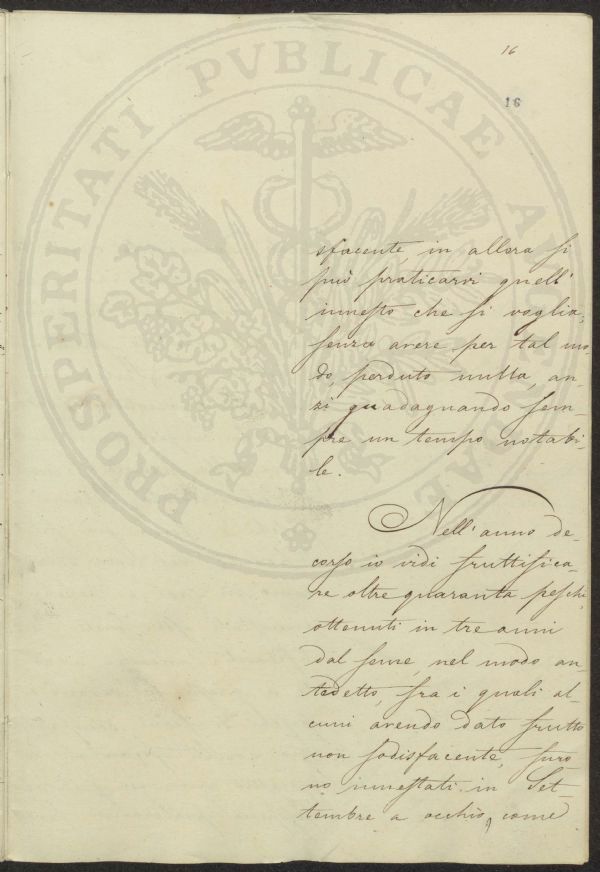 16
16
sfacente, in allora si
può praticarvi quell'
innesto che si voglia,
senza avere per tal mo-
do, perduto nulla, an-
zi guadagnando sem-
pre un tempo notabi-
le.
Nell'anno de-
corso io vidi fruttifica-
re oltre quaranta peschi,
ottenuti in tre anni
dal seme, nel modo an-
tedetto, fra i quali al-
cuni avendo dato frutto
non sodisfacente, furo-
no innestati in Set-
tembre a occhio, come
PROSPERITATI PVBLICAE AVGENDAE